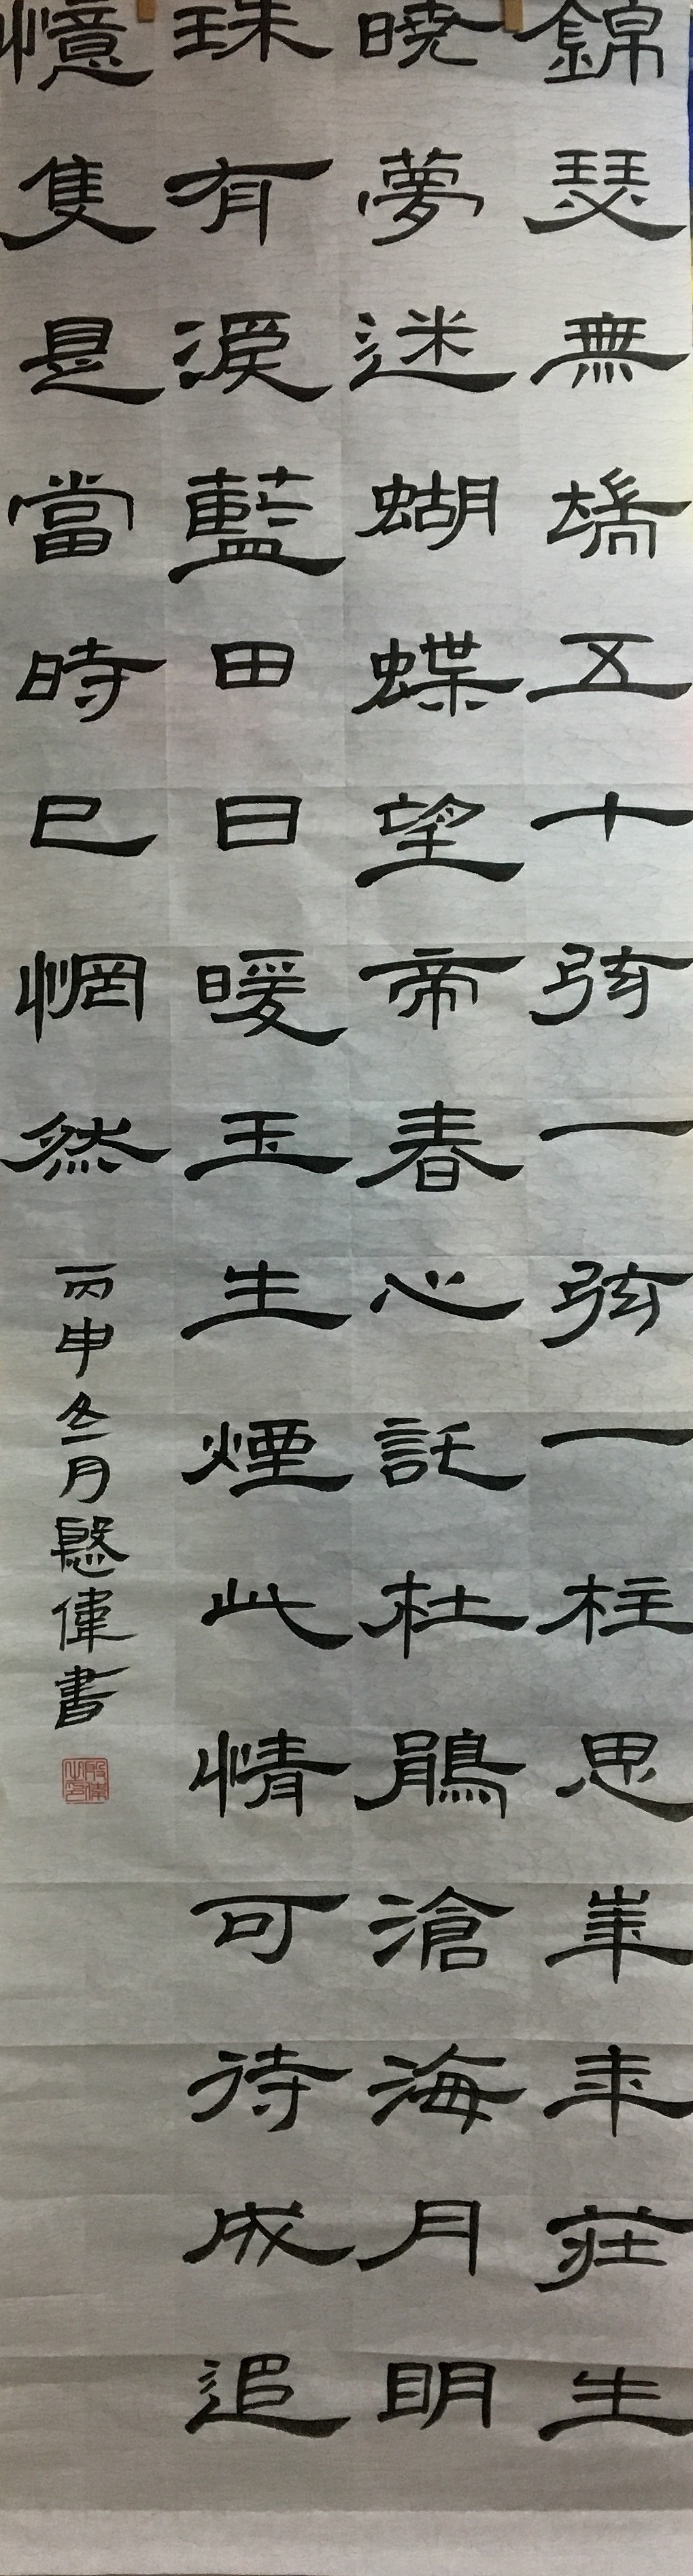 錦瑟無端五十弦一弦一柱思華年莊生
曉夢迷蝴蝶望帝春心託杜鵑滄海月明
珠有淚藍田日暖玉生煙此情可待成追
憶隻是當時已惘然
丙申冬月慇偉書